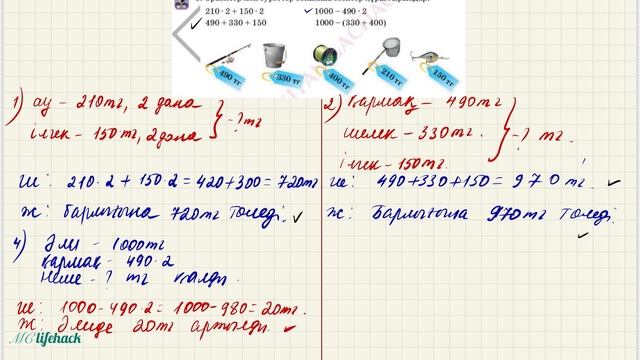 210 · 2 + 150 · 2
1000 – 490 · 2
490 + 330 + 150
1000 – (330 + 400)
490 тг
330 тг
400 тг
210 тг
150 тг
1) ау – 210тг, 2 дана
ілгек – 150 тг, 2дана } – ? тг
ш: 210·2 + 150·2 = 420+300 = 720тг
ж: барлығына 720тг төледі.
2) қармақ – 490тг
шелек – 330тг. } – ? тг.
ілгек – 150тг.
ш: 490+330+150 = 970 тг.
ж: Барлығына 970тг төледі.
4) Әли – 1000тг
қармақ – 490·2
Неше – ? тг қалды.
ш: 1000 – 490·2 = 1000 – 980 = 20тг.
ж: Әлиде 20тг артылды.
MG lifehack